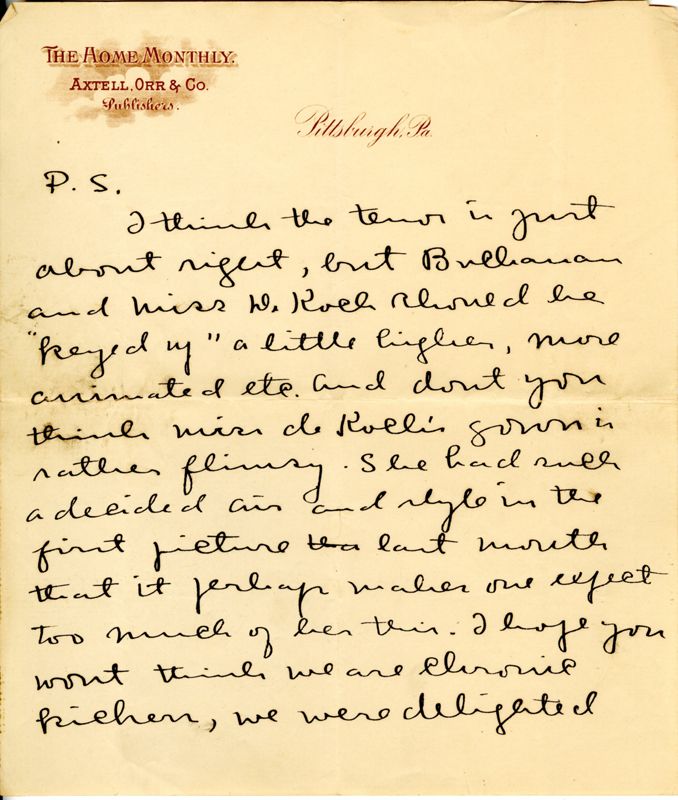 THE HOME MONTHLY.
AXTELL, ORR & CO.
Publishers.
Pittsburgh, Pa.
P. S.
I think the tenor is just
about right, but Buchanan
and Miss De Koch should be
"keyed up" a little higher, more
animated etc. And dont you
think miss de Koch's gown is
rather flimsy. She had such
a decided air and style in the
first picture last month
that it perhaps makes one expect
too much of her this. I hope you
wont think we are chronic
kickers, we were delighted